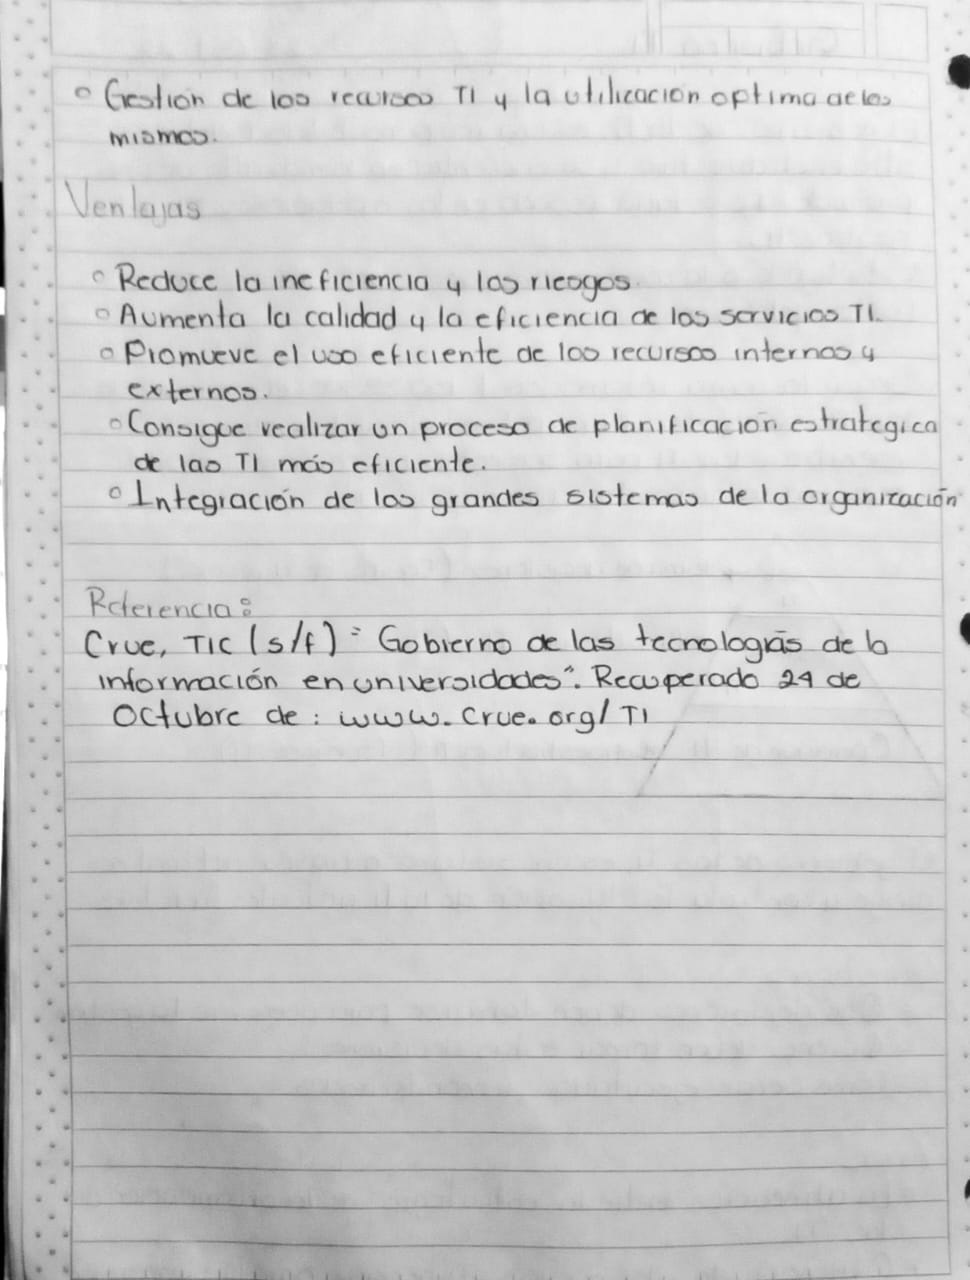 ° Gestion de los recursos TI y la utilización optima de los
mismos.
Ventajas
° Reduce la ineficiencia y los riesgos.
° Aumenta la calidad y la eficiencia de los servicios TI.
° Promueve el uso eficiente de los recursos internos y
externos.
° Consigue realizar un proceso de planificación estrategica
de las TI más eficiente.
° Integración de los grandes sistemas de la organización
Referencia:
Crue, TIC (s/f) "Gobierno de las tecnologías de la
información en universidades". Recuperado 24 de
Octubre de: www.crue.org/TI